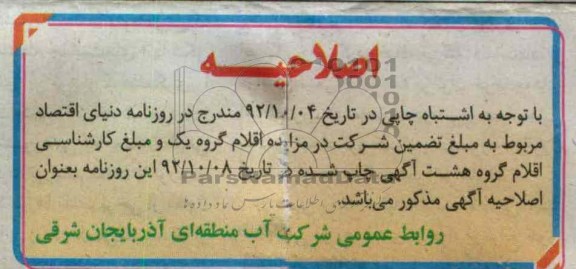 اصلاحیه
با توجه به اشتباه چاپی در تاریخ ۹۲/۱۰/۰۴ مندرج در روزنامه دنیای اقتصاد
مربوط به مبلغ تضمین شرکت در مزایده اقلام گروه یک و مبلغ کارشناسی
اقلام گروه هشت آگهی چاپ شده در تاریخ ۹۲/۱۰/۰۸ این روزنامه بعنوان
ParsNamadData
اصلاحیه آگهی مذکور می‌باشد.
روابط عمومی شرکت آب منطقه‌ای آذربایجان شرقی